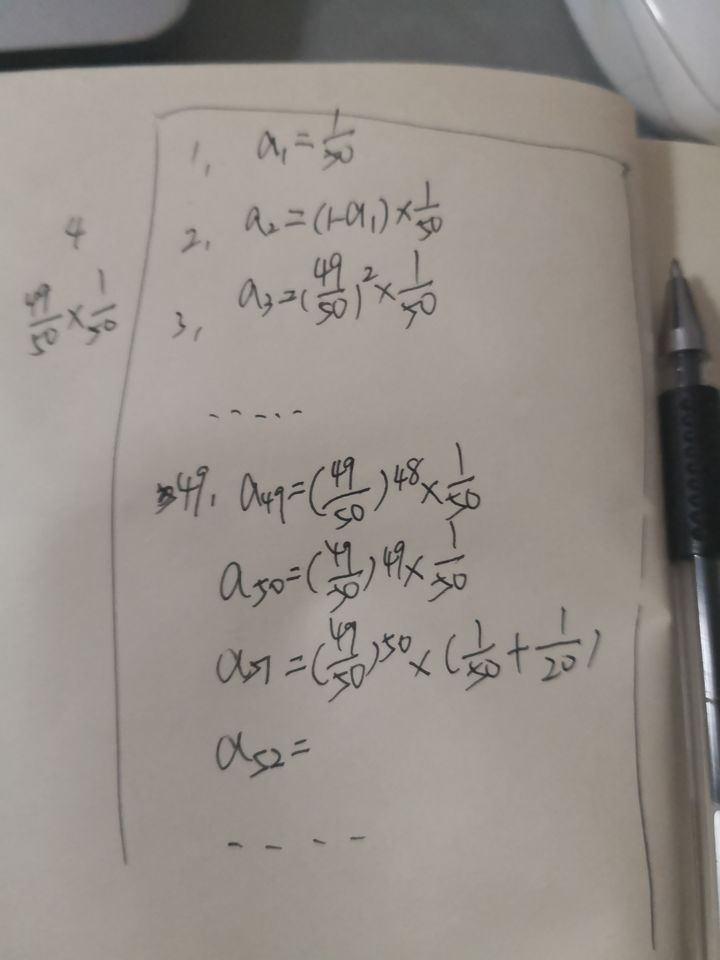 1, a₁=1/50
2, a₂=(1-a₁)×1/50
4
49/50×1/50
3, a₃=(49/50)²×1/50
.....
49, a₄₉=(49/50)⁴⁸×1/50
a₅₀=(49/50)⁴⁹×1/50
a₅₁=(49/50)⁵⁰×(1/50+1/20)
a₅₂=
....